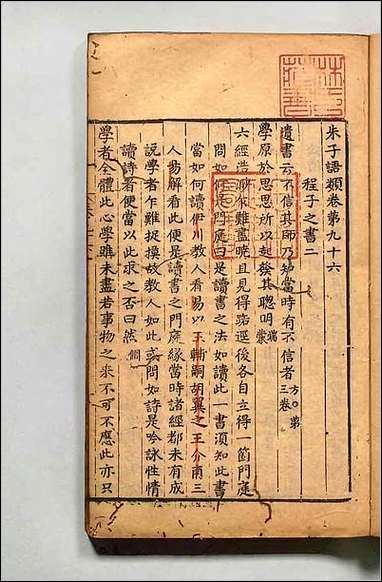 朱子語類卷第九十六
程子之書二
遺書云不信其師乃知當時有不信者方○第三卷
學原於思思所以起發其聰明端蒙
六經浩渺乍難盡曉且見得路逕後各自立得一箇門庭
問如何是門庭曰是讀書之法如讀此一書須知此書
當如何讀伊川教人看易以王輔嗣胡翼之王介甫三
人易解看此便是讀書之門庭緣當時諸經都未有成
說學者乍難捉摸故教人如此或問如詩是吟詠性情
讀詩者便當以此求之否曰然僩
學者全體此心學雖未盡若事物之來不可不應此亦只